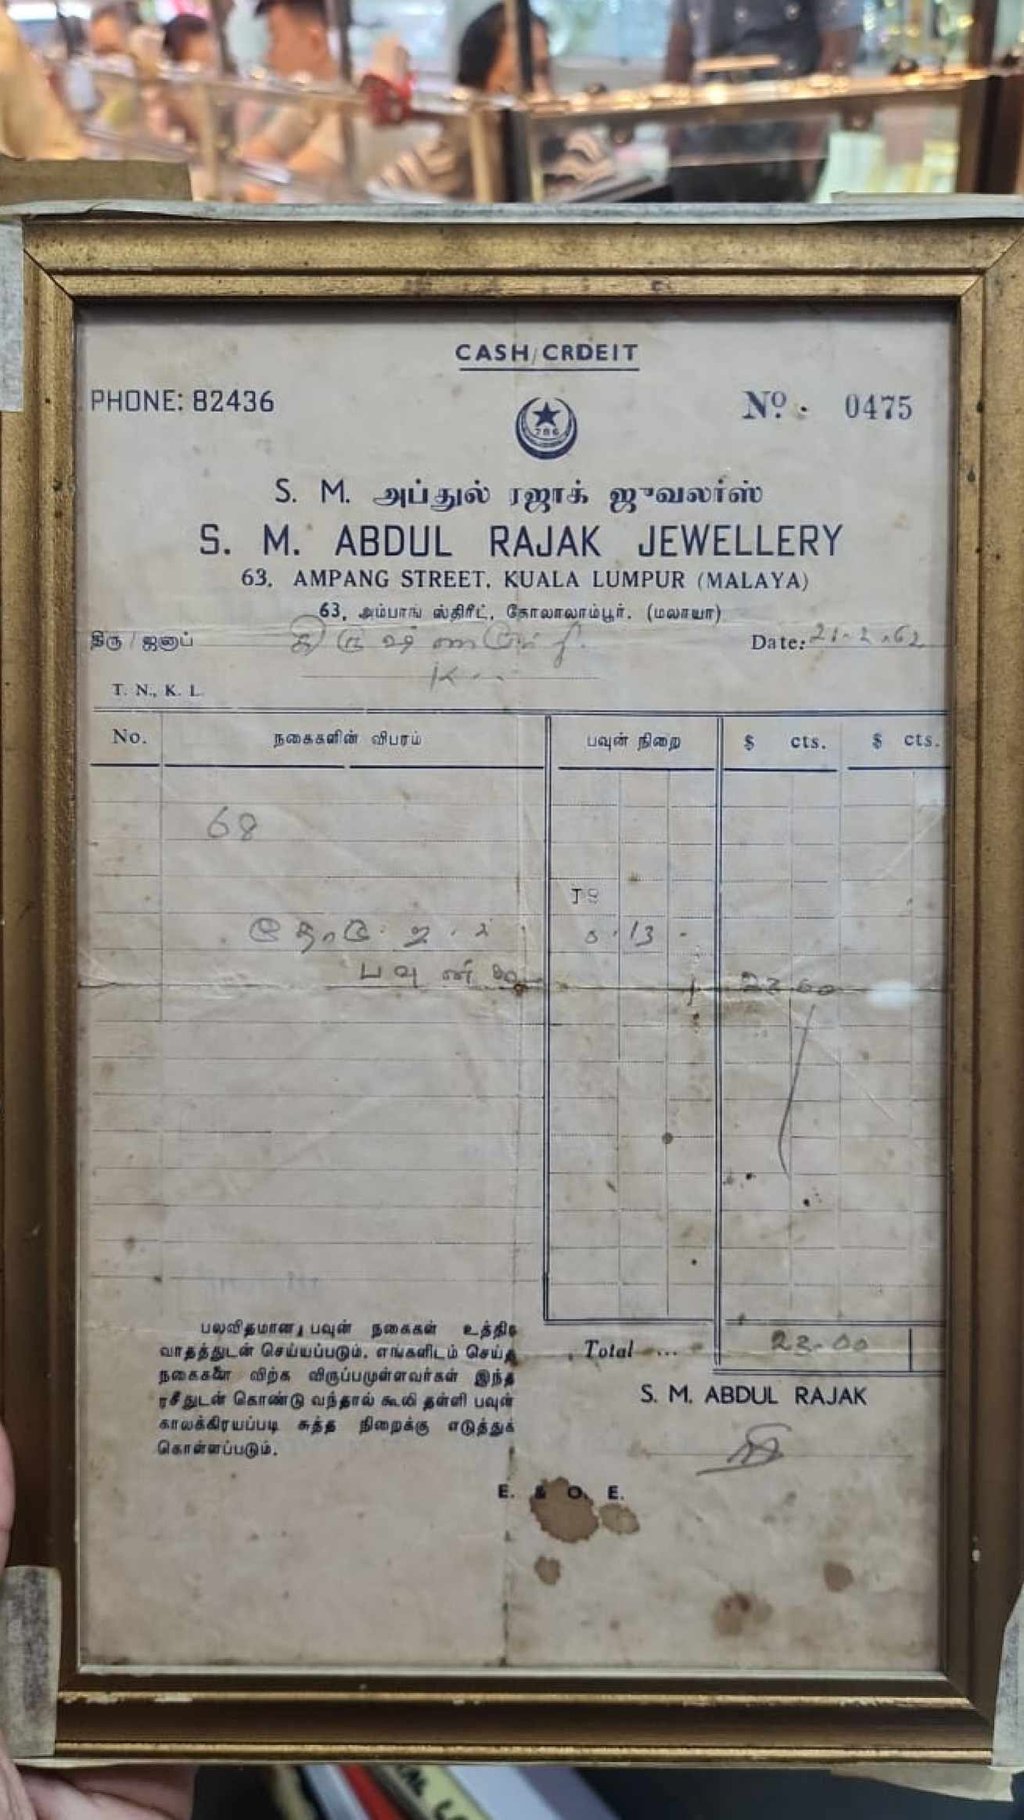 CASH/CRDEIT
PHONE: 82436
Nº. 0475
786
S. M. அப்துல் ரஜாக் ஜுவலர்ஸ்
S. M. ABDUL RAJAK JEWELLERY
63, AMPANG STREET, KUALA LUMPUR (MALAYA)
63, அம்பாங் ஸ்திரீட், கோலாலாம்பூர். (மலாயா)
திரு / ஜனாப்
Date: 21.2.62
T. N., K. L.
No. நகைகளின் விபரம் பவுன் நிறை $ cts. $ cts.
68
13
23 00
பலவிதமான பவுன் நகைகள் உத்திர
வாதத்துடன் செய்யப்படும். எங்களிடம் செய்த
நகைகளை விற்க விருப்பமுள்ளவர்கள் இந்த
ரசீதுடன் கொண்டு வந்தால் கூலி தள்ளி பவுன்
காலக்கிரயப்படி சுத்த நிறைக்கு எடுத்துக்
கொள்ளப்படும்.
Total ... 23.00
S. M. ABDUL RAJAK
E. & O. E.